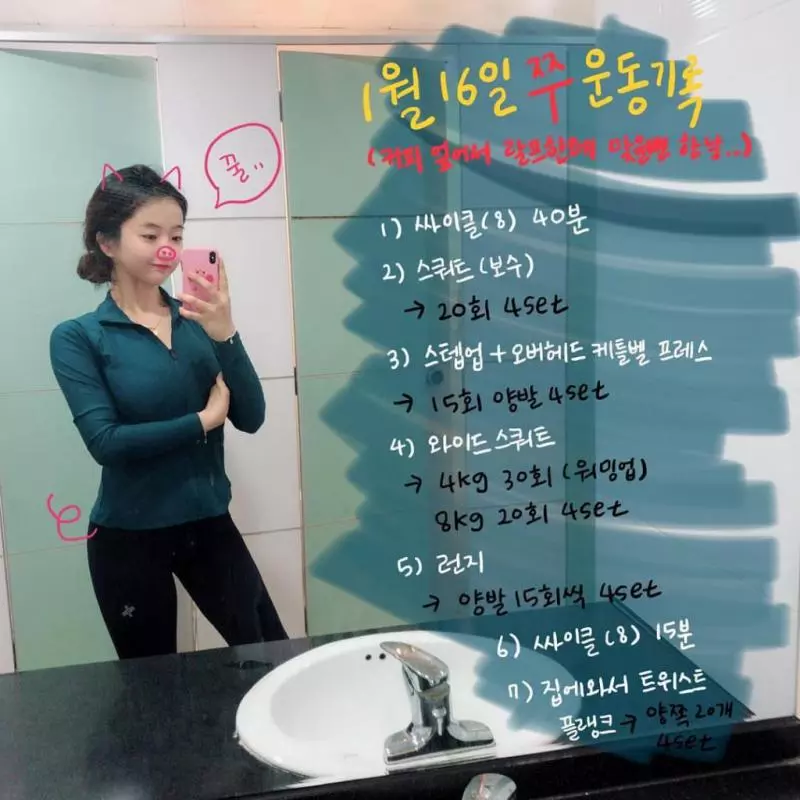 1월 16일 쭈 운동기록
꿀..
1) 싸이클(8) 40분
2) 스쿼드(보수)
→ 20회 4set
3) 스텝업 + 오버헤드 케틀벨 프레스
→ 15회 양발 4set
4) 와이드 스쿼트
→ 4kg 30회 (워밍업)
8kg 20회 4set
5) 런지
→ 양발 15회씩 4set
6) 싸이클(8) 15분
7) 집에와서 트위스트
플랭크 → 양쪽 20개
4set